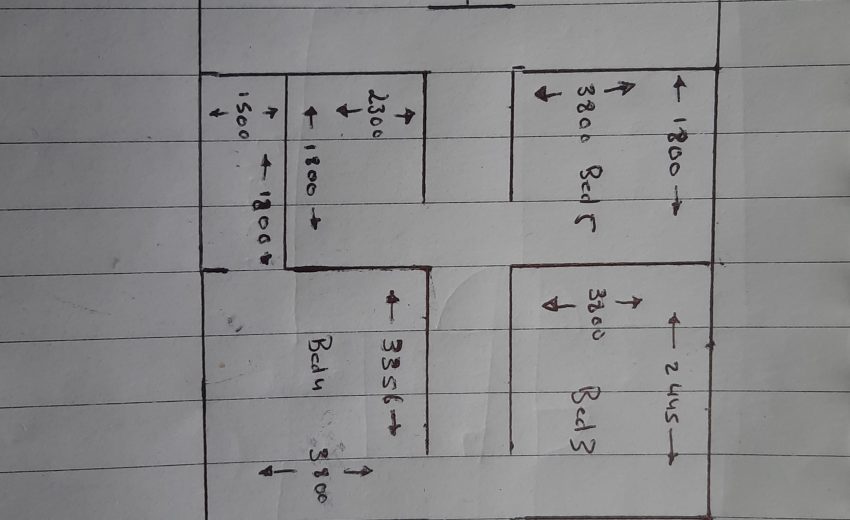 1800
3800
Bed 5
2300
1800
1500
1800
2445
3800
Bed 3
3356
Bed 4
3800